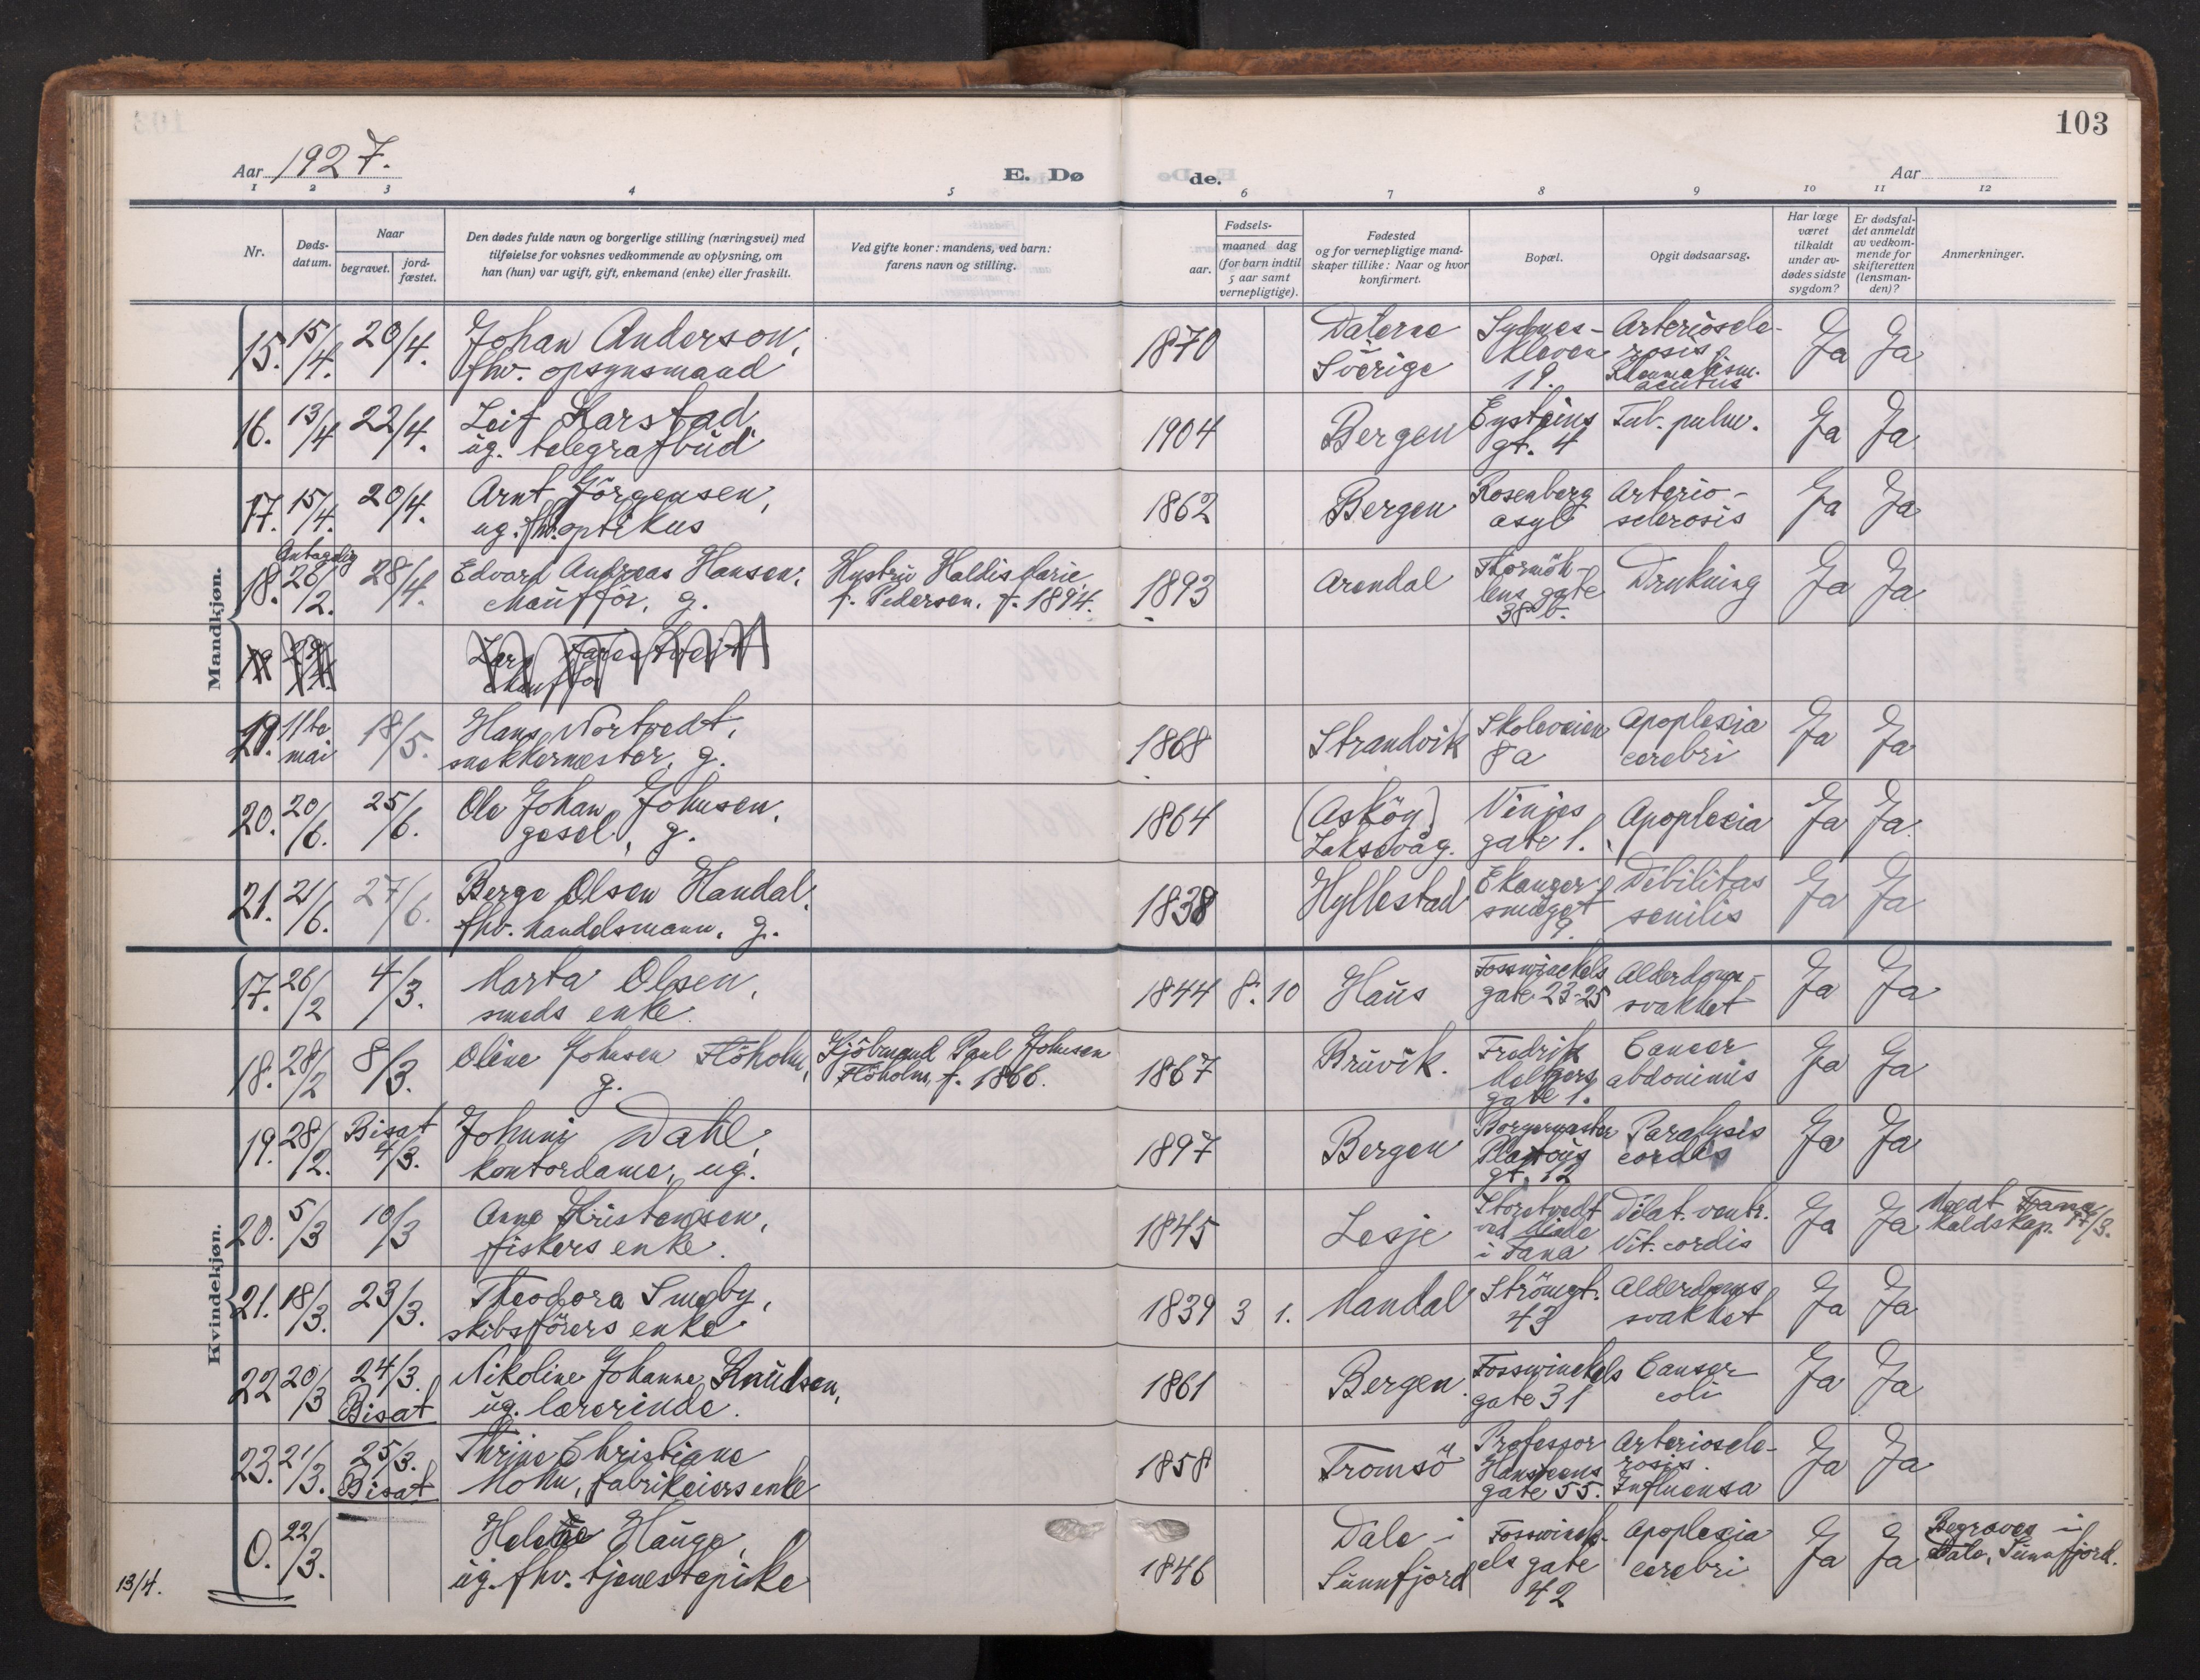 103
Aar 1927.
E. Døde.
Aar
1 2 3 4 5 6 7 8 9 10 11 12
Nr.
Døds-
datum.
Naar
begravet.
jord-
fæstet.
Den dødes fulde navn og borgerlige stilling (næringsvei) med
tilføielse for voksnes vedkommende av oplysning, om
han (hun) var ugift, gift, enkemand (enke) eller fraskilt.
Ved gifte koner: mandens, ved barn:
farens navn og stilling.
Fødsels-
aar. maaned dag
(for barn indtil
5 aar samt
vernepligtige).
Fødested
og for vernepligtige mand-
skaper tillike: Naar og hvor
konfirmert.
Bopæl.
Opgit dødsaarsag.
Har læge
været
tilkaldt
under av-
dødes sidste
sygdom?
Er dødsfal-
det anmeldt
av vedkom-
mende for
skifteretten
(lensman-
den)?
Anmerkninger.
Mandkjøn.
15. 15/4. 20/4. Johan Anderson, 1870 Dalerne Sydnes- Arterioscle- Ja Ja
fhv. opsynsmand Sverige kleven rosis
19. Rheumatism.
acutus
16. 13/4 22/4. Leif Karstad, 1904 Bergen Eysteins Tub. pulm. Ja Ja
ug. telegrafbud gt. 4
17. 15/4. 20/4. Arnt Jörgensen, 1862 Bergen Rosenberg Arterio- Ja Ja
ug. fhv. optikus asyl sclerosis
Antagelig
18. 26/2. 28/4. Edvard Andreas Hansen, Hustru Haldis Marie 1893 Arendal Thormöh- Drukning Ja Ja
chauffør, g. f. Pedersen, f. 1894. lens gate
38 b.
19
chauffør
19. 11te 18/5. Hans Nortvedt, 1868 Strandvik Skoleveien Apoplexia Ja Ja
mai snekkermester, g. 8 a cerebri
20. 20/6. 25/6. Ole Johan Johnsen, 1864 (Asköy) Vinjes Apoplexia Ja Ja
gesel, g. Laksevåg. gate 1.
21. 21/6. 27/6. Berge Olsen Handal, 1838 Hyllestad Ekanger Debilitas Ja Ja
fhv. handelsmann, g. smuget senilis
9.
Kvindekjøn.
17. 26/2 4/3. Marta Olsen, 1844 8. 10 Haus Fosswinckels Alderdoms- Ja Ja
smeds enke. gate 23-25 svakhet
18. 28/2 8/3. Oline Johnsen Flöholm, Kjöbmand Paul Johnsen 1867 Bruvik. Fredrik Cancer Ja Ja
g. Flöholm, f. 1866. Meltzers abdominis
gate 1.
19. 28/2. Bisat Johnni Dahl, 1897 Bergen Borgermester Paralysis Ja Ja
4/3. kontordame, ug. Platöus cordis
gt. 12
20. 5/3 10/3 Anne Kristensen, 1845 Lesje Storetvedt Dilat. ventr. Ja Ja Meldt Fana
fiskers enke. ved Minde Vit. cordis
i Fana
21. 18/3. 23/3. Theodora Smeby, 1839 3 1. Mandal Strömgt. Alderdoms Ja Ja
skibsförers enke 43 svakhet
22 20/3 24/3. Nikoline Johanne Knudsen, 1861 Bergen. Fosswinckels Canser Ja Ja
Bisat ug. lærerinde. gate 31 coli
23. 21/3. 25/3. Thrine Christiane 1858 Tromsö Professor Arteriosele- Ja Ja
Bisat Mohn, fabrikeiers enke Hansteens rosis.
gate 55. Influensa
0. 22/3. Helene Hauge, 1846 Dale i Fosswinck- Apoplexia Ja Ja Begraves i
ug. fhv. tjenestepike Sunnfjord els gate cerebri Dale, Sunnfjord.
42
13/4.